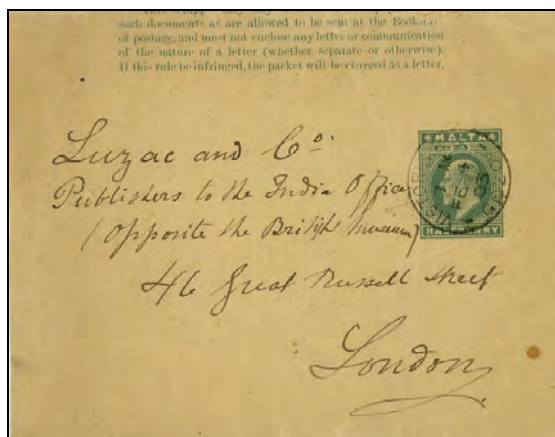 such documents as are allowed to be sent at the Book-rate
of postage, and must not enclose any letter or communication
of the nature of a letter (whether separate or otherwise).
If this rule be infringed, the packet will be charged as a letter.
MALTA
HALFPENNY
Luzac and Co.
Publishers to the India Office
(opposite the British Museum)
46 Great Russell Street
London